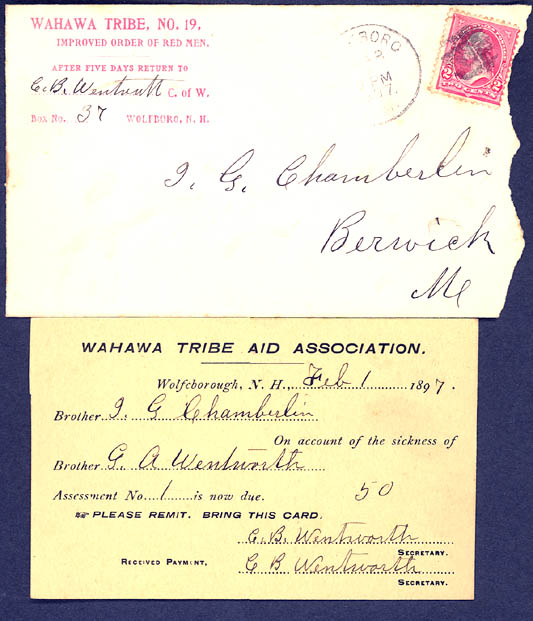 WAHAWA TRIBE, NO. 19,
IMPROVED ORDER OF RED MEN.
AFTER FIVE DAYS RETURN TO
C. B. Wentworth C. of W.
Box No. 37 WOLFBORO, N. H.
BORO
2
PM
97
2 TWO CENTS 2
I. G. Chamberlin
Berwick
Me
WAHAWA TRIBE AID ASSOCIATION.
Wolfeborough, N. H., Feb 1 1897.
Brother I G Chamberlin
On account of the sickness of
Brother G. A Wentworth
Assessment No. 1 is now due. 50
☞ PLEASE REMIT. BRING THIS CARD.
C. B. Wentworth
SECRETARY.
RECEIVED PAYMENT, C B Wentworth
SECRETARY.